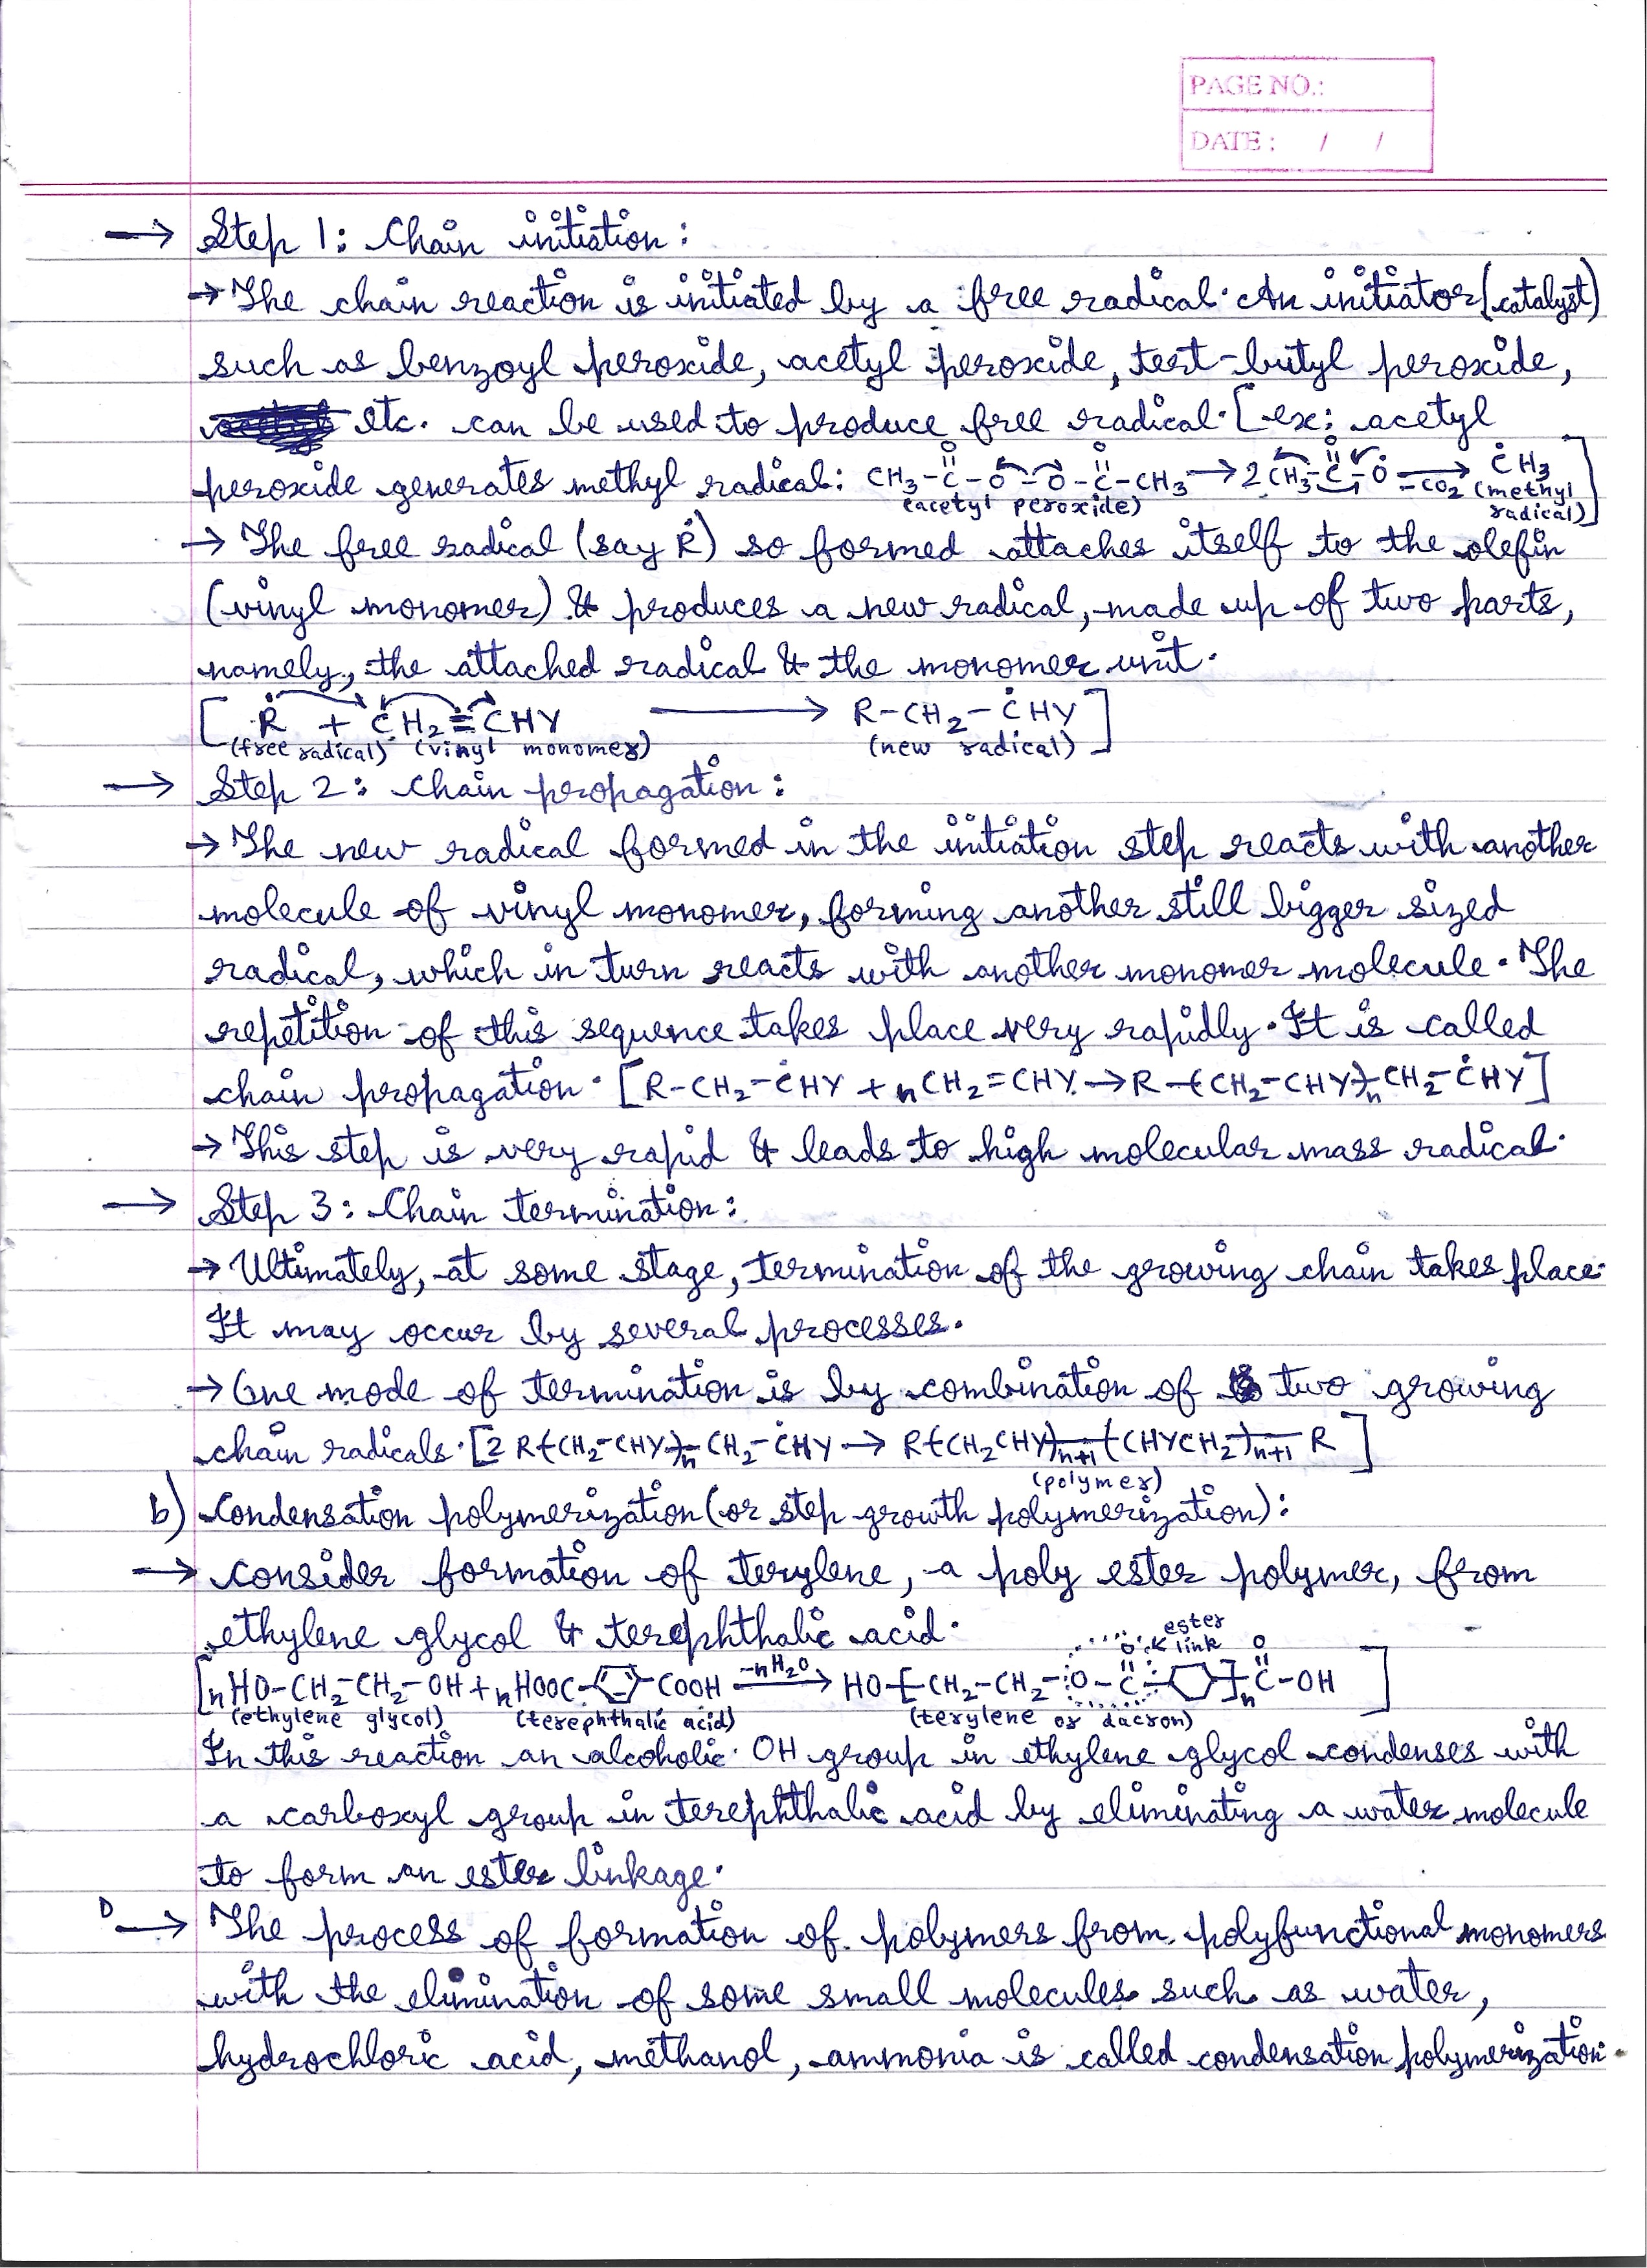 PAGE NO.:
DATE : / /
→ Step 1: Chain initiation:
→ The chain reaction is initiated by a free radical. An initiator (catalyst)
such as benzoyl peroxide, acetyl peroxide, tert-butyl peroxide,
etc. can be used to produce free radical. [ex: acetyl
peroxide generates methyl radical: CH₃-C(=O)-O-O-C(=O)-CH₃ → 2 CH₃-C(=O)-Ȯ →(-CO₂) ĊH₃
(acetyl peroxide) (methyl radical)]
→ The free radical (say Ṙ) so formed attaches itself to the olefin
(vinyl monomer) & produces a new radical, made up of two parts,
namely, the attached radical & the monomer unit.
[Ṙ + CH₂=CHY → R-CH₂-ĊHY]
(free radical) (vinyl monomer) (new radical)
→ Step 2: Chain propagation:
→ The new radical formed in the initiation step reacts with another
molecule of vinyl monomer, forming another still bigger sized
radical, which in turn reacts with another monomer molecule. The
repetition of this sequence takes place very rapidly. It is called
chain propagation. [R-CH₂-ĊHY + nCH₂=CHY → R-(CH₂-CHY)ₙ-CH₂-ĊHY]
→ This step is very rapid & leads to high molecular mass radical.
→ Step 3: Chain termination:
→ Ultimately, at some stage, termination of the growing chain takes place.
It may occur by several processes.
→ One mode of termination is by combination of two growing
chain radicals. [2 R-(CH₂-CHY)ₙ-CH₂-ĊHY → R-(CH₂CHY)ₙ₊₁-(CHYCH₂)ₙ₊₁-R]
(polymer)
b) Condensation polymerization (or step growth polymerization):
→ consider formation of terylene, a poly ester polymer, from
ethylene glycol & terephthalic acid.
ester link
[nHO-CH₂-CH₂-OH + nHOOC-⌬-COOH →(-nH₂O) HO-[-CH₂-CH₂-O-C(=O)-⌬-]ₙ-C(=O)-OH]
(ethylene glycol) (terephthalic acid) (terylene or dacron)
In this reaction an alcoholic OH group in ethylene glycol condenses with
a carboxyl group in terephthalic acid by eliminating a water molecule
to form an ester linkage.
D → The process of formation of polymers from polyfunctional monomers
with the elimination of some small molecules such as water,
hydrochloric acid, methanol, ammonia is called condensation polymerization.